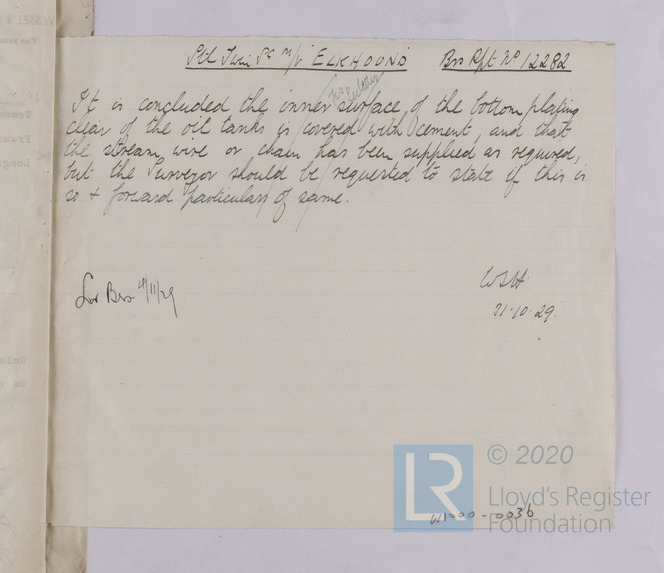 Stl Twin Sc M/V ELKHOUND Brs Rpt No 12282
It is concluded the inner surface, of the bottom plating
clear of the oil tanks is covered with cement, and that
the stream wire or chain has been supplied as required,
but the Surveyor should be requested to state if this is
so + forward particulars of same.
WSH
31.10.29.
Brs 4/11/29
© 2020
LR
Lloyd's Register
Foundation
W1000-0036